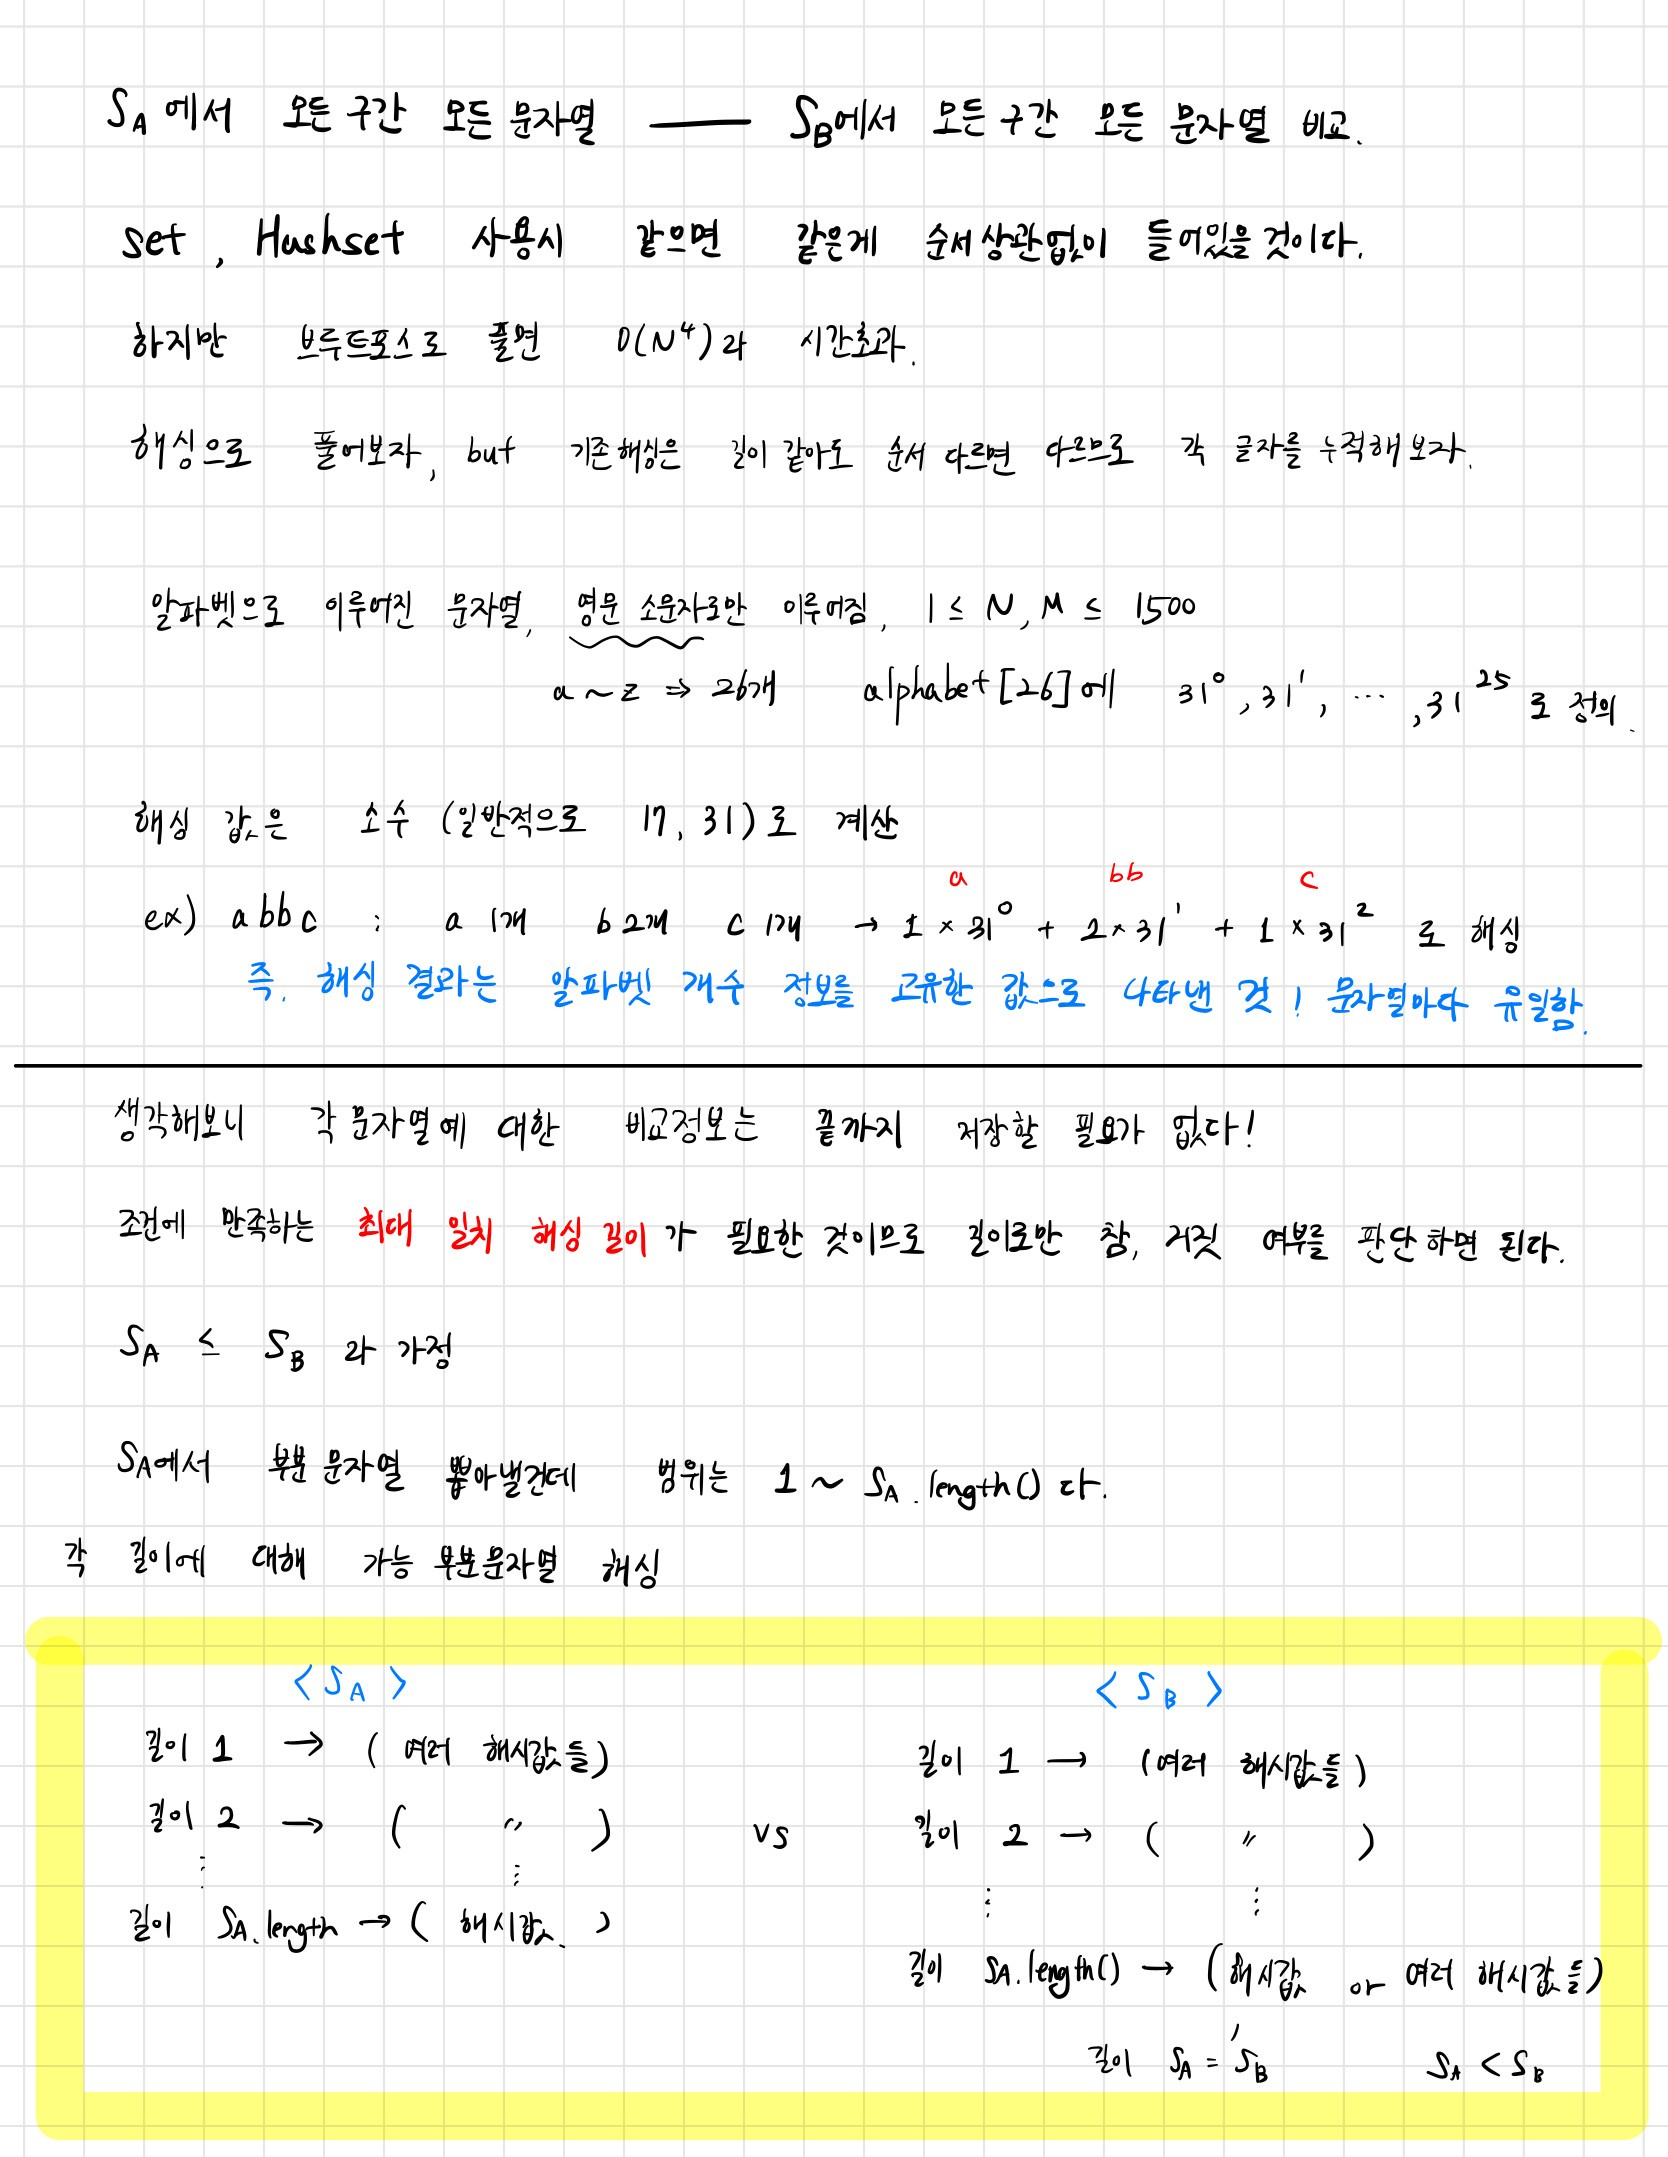 S_A 에서 모든 구간 모든 문자열 —— S_B에서 모든 구간 모든 문자열 비교.
set, Hashset 사용시 같으면 같은게 순서상관없이 들어있을 것이다.
하지만 브루트포스로 풀면 O(N⁴)라 시간초과.
해싱으로 풀어보자, but 기존해싱은 길이 같아도 순서 다르면 다르므로 각 글자를 누적해보자.
알파벳으로 이루어진 문자열, 영문 소문자로만 이루어짐, 1 ≤ N, M ≤ 1500
a ~ z ⇒ 26개 alphabet[26]에 31⁰, 31¹, ⋯, 31²⁵ 로 정의.
해싱 값은 소수 (일반적으로 17, 31)로 계산
a bb c
ex) abbc : a 1개 b 2개 c 1개 → 1 × 31⁰ + 2 × 31¹ + 1 × 31² 로 해싱
즉, 해싱 결과는 알파벳 개수 정보를 고유한 값으로 나타낸 것! 문자열마다 유일함.
생각해보니 각 문자열에 대한 비교정보는 끝까지 저장할 필요가 없다!
조건에 만족하는 최대 일치 해싱 길이가 필요한 것이므로 길이로만 참, 거짓 여부를 판단하면 된다.
S_A ≤ S_B 라 가정
S_A에서 부분문자열 뽑아낼건데 범위는 1 ~ S_A.length() 다.
각 길이에 대해 가능 부분문자열 해싱
<S_A> <S_B>
길이 1 → (여러 해시값들) 길이 1 → (여러 해시값들)
길이 2 → ( 〃 ) vs 길이 2 → ( 〃 )
⋮ ⋮ ⋮ ⋮
길이 S_A.length → ( 해시값. ) 길이 S_A.length() → (해시값 or 여러 해시값들)
길이 S_A = S_B S_A < S_B